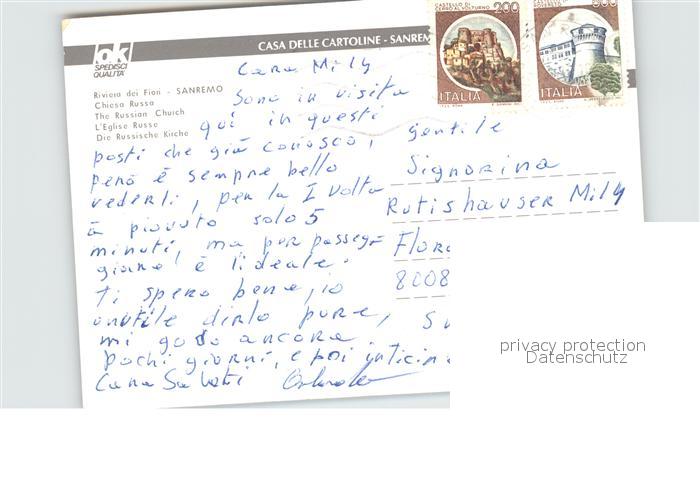 ok
SPEDISCI
QUALITÀ
CASA DELLE CARTOLINE - SANREM
CASTELLO DI
CERRO AL VOLTURNO 200
ITALIA
ITALIA
Riviera dei Fiori - SANREMO
Chiesa Russa
The Russian Church
L'Eglise Russe
Die Russische Kirche
Cara Mily
Sono in visita
qui in questi
posti che già conosco,
però è sempre bello
vederli, per la I volta
à piovuto solo 5
minuti, ma per passeg-
giare è l'ideale.
Ti spero bene, io
inutile dirlo pure,
mi godo ancora
pochi giorni, e poi
Cara Saluti
gentile
Signorina
Rutishauser Mily
Flora
8008
privacy protection
Datenschutz